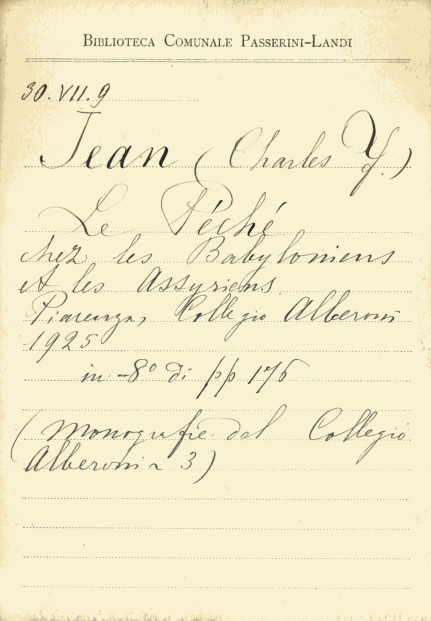 BIBLIOTECA COMUNALE PASSERINI-LANDI
30.VII.9
Jean (Charles F.)
Le Péché
chez les Babyloniens
et les Assyriens.
Piacenza, Collegio Alberoni
1925
in-8° di pp 176
(Monografie del Collegio
Alberoni n 3)